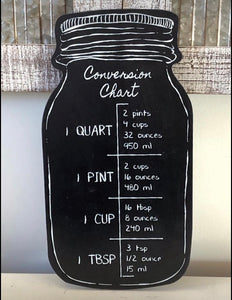 Conversion
Chart
1 QUART
2 pints
4 cups
32 ounces
950 ml
1 PINT
2 cups
16 ounces
480 ml
1 CUP
16 tbsp
8 ounces
240 ml
1 TBSP
3 tsp
1/2 ounce
15 ml